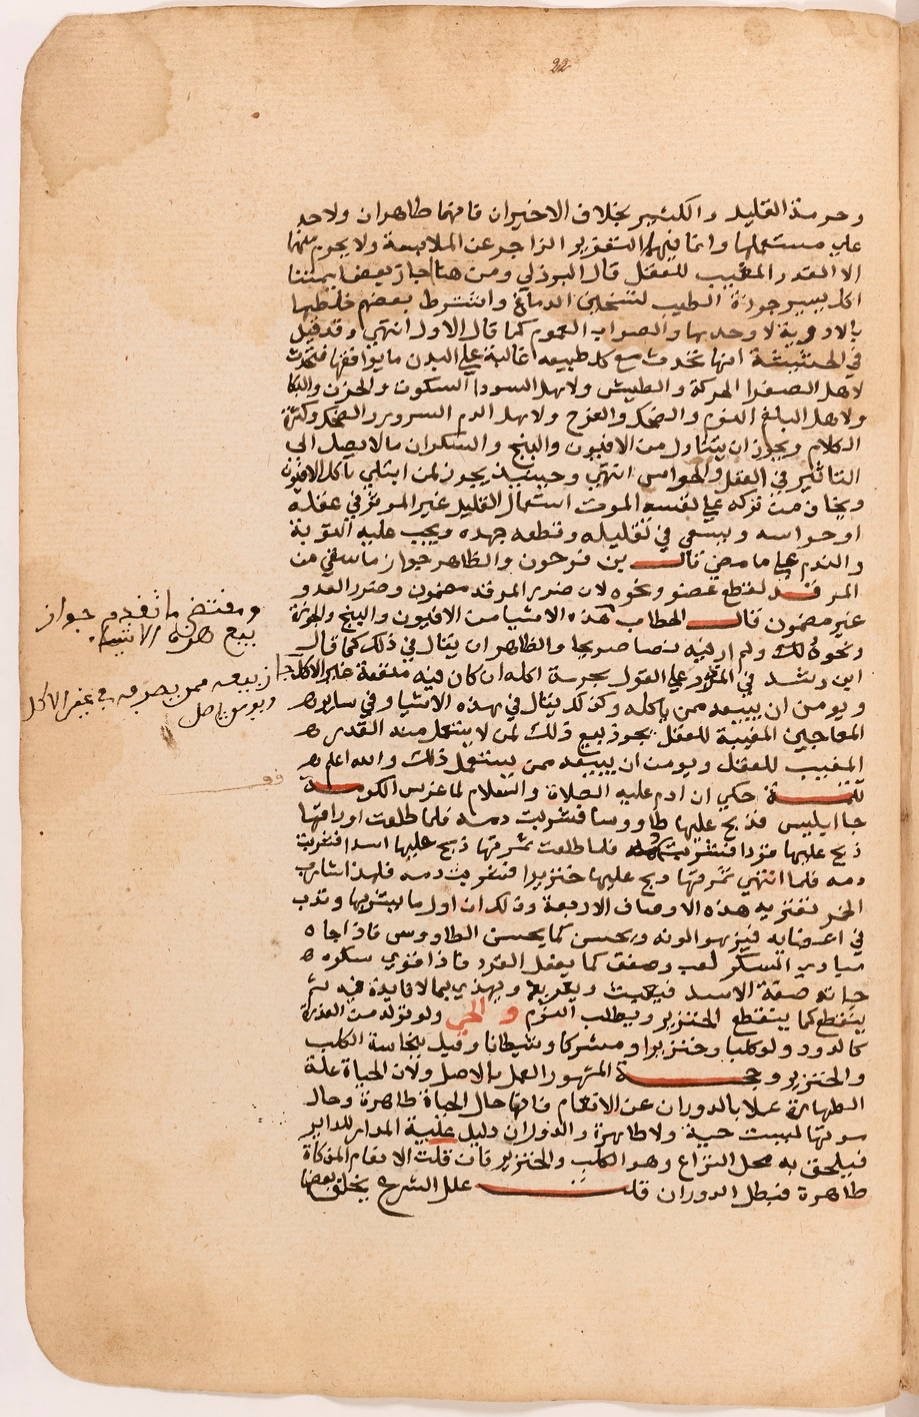 22
وحرمة القليل والكثير بخلاف الاخيران فانهما طاهران ولا حد
على مستعملها وانما فيهما التعزير الزاجر عن الملابسة ولا يحرم منهما
الا القدر المغيب للعقل قال البرزلي ومن هنا اجاز بعض ايمتنا
اكل يسير جوزة الطيب لتسخين الدماغ واشترط بعضهم خلطها
بالادوية لا وحدها والصواب العموم كما قال الاول انتهى وقد قيل
في الحشيشة انها تحدث مع كل طبيعه غالبة على البدن ما يوافقها فتحدث
لاهل الصفرا الحركة والطيش ولاهل السودا السكوت والحزن والبكا
ولاهل البلغم النوم والضحك والفرح ولاهل الدم السرور والضحك وكثرة
الكلام ويجوز ان يتناول من الافيون والبنج والسكران مالا يصل الى
التاثير في العقل والحواس انتهى وحينيذ يجوز لمن ابتلي باكل الافيون
ويخاف من تركه على نفسه الموت استعمال القليل غير الموثر في عقله
او حواسه ويسعى في تقليله وقطعه جهده ويجب عليه التوبة
والندم على ما مضى قال بن فرحون والظاهر جواز ما سقي من
المرقد لقطع عضو ونحوه لان ضرر المرقد مضمون وضرر العضو
غير مضمون قال الحطاب هذه الاشيا من الافيون والبنج والجوزة
ونحو ذلك ولم ار فيه نصا صريحا والظاهر ان يقال في ذلك كما قال
ابن رشد في المقرر على القول بحرمة اكله ان كان فيه منفعة غير الاكل جاز بيعه ممن يصرفه في غير الاكل
ويومن ان يبيعه ممن ياكله وكذلك يقال في هذه الاشيا وفي ساير
المعاجين المغيبة للعقل يجوز بيع ذلك لمن لا يستعمل منه القدر
المغيب للعقل ويومن ان يبيعه ممن يستعمل ذلك والله اعلم
تتمة حكي ان ادم عليه الصلاة والسلام لما غرس الكرمة
جا ابليس فذبح عليها طاووسا فشربت دمه فلما طلعت اوراقها
ذبح عليها قردا فشربت دمه فلما طلعت ثمرتها ذبح عليها اسدا فشربت
دمه فلما انتهي ثمرتها ذبح عليها خنزيرا فشربت دمه فلهذا شارب
الخمر تعتريه هذه الاوصاف الاربعة وذلك ان اول ما يشربها وتدب
في اعضايه فيزهو لونه ويحسن كما يحسن الطاووس فاذا جاه
مبادي السكر لعب وصفق كما يفعل القرد فاذا قوي سكره
جاته صفة الاسد فيعبث ويعربد ويهذي بمالا فايدة فيه ثم
يتقطع كما يتقطع الخنزير ويطلب النوم والحي ولو تولد من العذرة
كالدود ولو كلبا وخنزيرا ومشركا وشيطانا وقيل بنجاسة الكلب
والخنزير وحجة المشهور العمل بالاصل ولان الحياة علة
الطهارة عملا بالدوران عن الانعام فانها حال الحياة طاهرة وحال
موتها ليست حية ولا طاهرة والدوران دليل علية المدار للداير
فيلحق به محل النزاع وهو الكلب والخنزير فان قلت الانعام المذكاة
طاهرة فبطل الدوران قلت علل الشرع يخلف بعضها
ومقتضى ما تقدم جواز
بيع هذه الاشياء